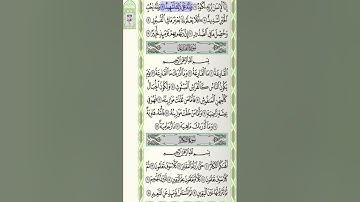 إِنَّ ٱلْإِنسَٰنَ لِرَبِّهِۦ لَكَنُودٌ ۝ وَإِنَّهُۥ عَلَىٰ ذَٰلِكَ لَشَهِيدٌ ۝ وَإِنَّهُۥ لِحُبِّ
ٱلْخَيْرِ لَشَدِيدٌ ۝ أَفَلَا يَعْلَمُ إِذَا بُعْثِرَ مَا فِى ٱلْقُبُورِ ۝
وَحُصِّلَ مَا فِى ٱلصُّدُورِ ۝ إِنَّ رَبَّهُم بِهِمْ يَوْمَئِذٍ لَّخَبِيرٌ ۝
سُورَةُ القَارِعَةِ
بِسْمِ ٱللَّهِ ٱلرَّحْمَٰنِ ٱلرَّحِيمِ
ٱلْقَارِعَةُ ۝ مَا ٱلْقَارِعَةُ ۝ وَمَآ أَدْرَىٰكَ مَا ٱلْقَارِعَةُ ۝ يَوْمَ
يَكُونُ ٱلنَّاسُ كَٱلْفَرَاشِ ٱلْمَبْثُوثِ ۝ وَتَكُونُ ٱلْجِبَالُ
كَٱلْعِهْنِ ٱلْمَنفُوشِ ۝ فَأَمَّا مَن ثَقُلَتْ مَوَٰزِينُهُۥ ۝ فَهُوَ فِى
عِيشَةٍ رَّاضِيَةٍ ۝ وَأَمَّا مَنْ خَفَّتْ مَوَٰزِينُهُۥ ۝ فَأُمُّهُۥ
هَاوِيَةٌ ۝ وَمَآ أَدْرَىٰكَ مَا هِيَهْ ۝ نَارٌ حَامِيَةٌۢ ۝
سُورَةُ التَّكَاثُرِ
بِسْمِ ٱللَّهِ ٱلرَّحْمَٰنِ ٱلرَّحِيمِ
أَلْهَىٰكُمُ ٱلتَّكَاثُرُ ۝ حَتَّىٰ زُرْتُمُ ٱلْمَقَابِرَ ۝ كَلَّا سَوْفَ تَعْلَمُونَ ۝
ثُمَّ كَلَّا سَوْفَ تَعْلَمُونَ ۝ كَلَّا لَوْ تَعْلَمُونَ عِلْمَ ٱلْيَقِينِ ۝ لَتَرَوُنَّ ٱلْجَحِيمَ ۝
ثُمَّ لَتَرَوُنَّهَا عَيْنَ ٱلْيَقِينِ ۝ ثُمَّ لَتُسْـَٔلُنَّ يَوْمَئِذٍ عَنِ ٱلنَّعِيمِ ۝